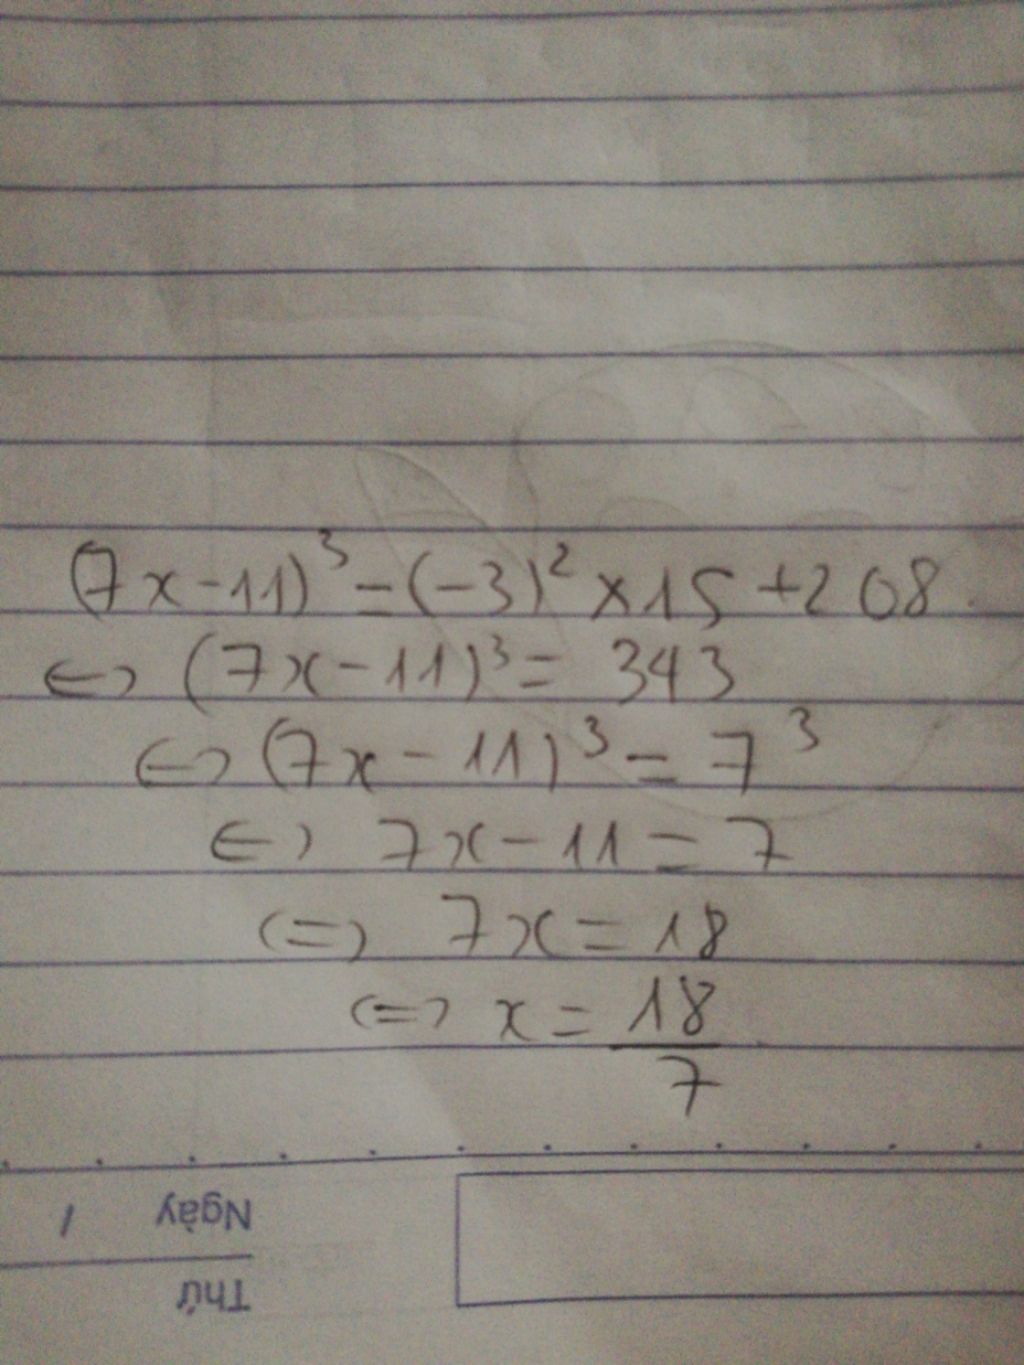 (7x-11)³=(-3)²×15+208
<=> (7x-11)³= 343
<=> (7x-11)³=7³
<=> 7x-11=7
<=> 7x=18
<=> x= 18/7
Ngày /
Thứ